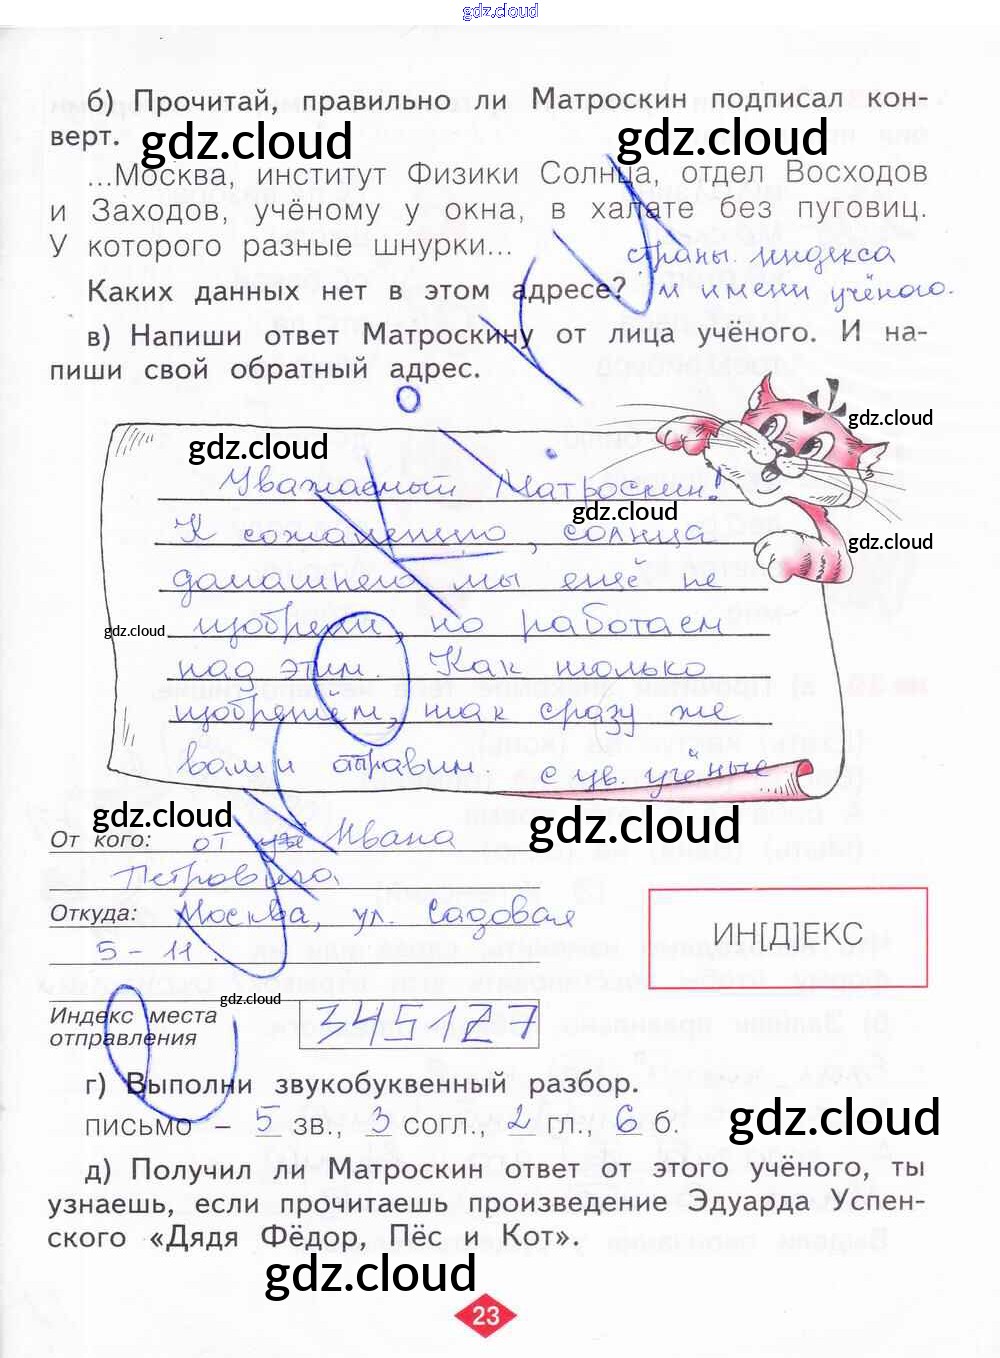 gdz.cloud
б) Прочитай, правильно ли Матроскин подписал кон-
верт.
gdz.cloud
gdz.cloud
...Москва, институт Физики Солнца, отдел Восходов
и Заходов, учёному у окна, в халате без пуговиц.
У которого разные шнурки...
страны. индекса
Каких данных нет в этом адресе? и имени учёного.
в) Напиши ответ Матроскину от лица учёного. И на-
пиши свой обратный адрес.
gdz.cloud
gdz.cloud
Уважаемый Матроскин!
gdz.cloud
К сожалению, солнца
gdz.cloud
домашнего мы ещё не
gdz.cloud
изобрели, но работаем
над этим. Как только
изобретём, так сразу же
вам и отправим. с ув. учёные
gdz.cloud
gdz.cloud
От кого: от Ивана
Петровича
Откуда: Москва, ул. Садовая
5 - 11.
ИН[Д]ЕКС
gdz.cloud
Индекс места
отправления
345127
г) Выполни звукобуквенный разбор.
письмо – 5 зв., 3 согл., 2 гл., 6 б.
gdz.cloud
д) Получил ли Матроскин ответ от этого учёного, ты
узнаешь, если прочитаешь произведение Эдуарда Успен-
ского «Дядя Фёдор, Пёс и Кот».
gdz.cloud
23